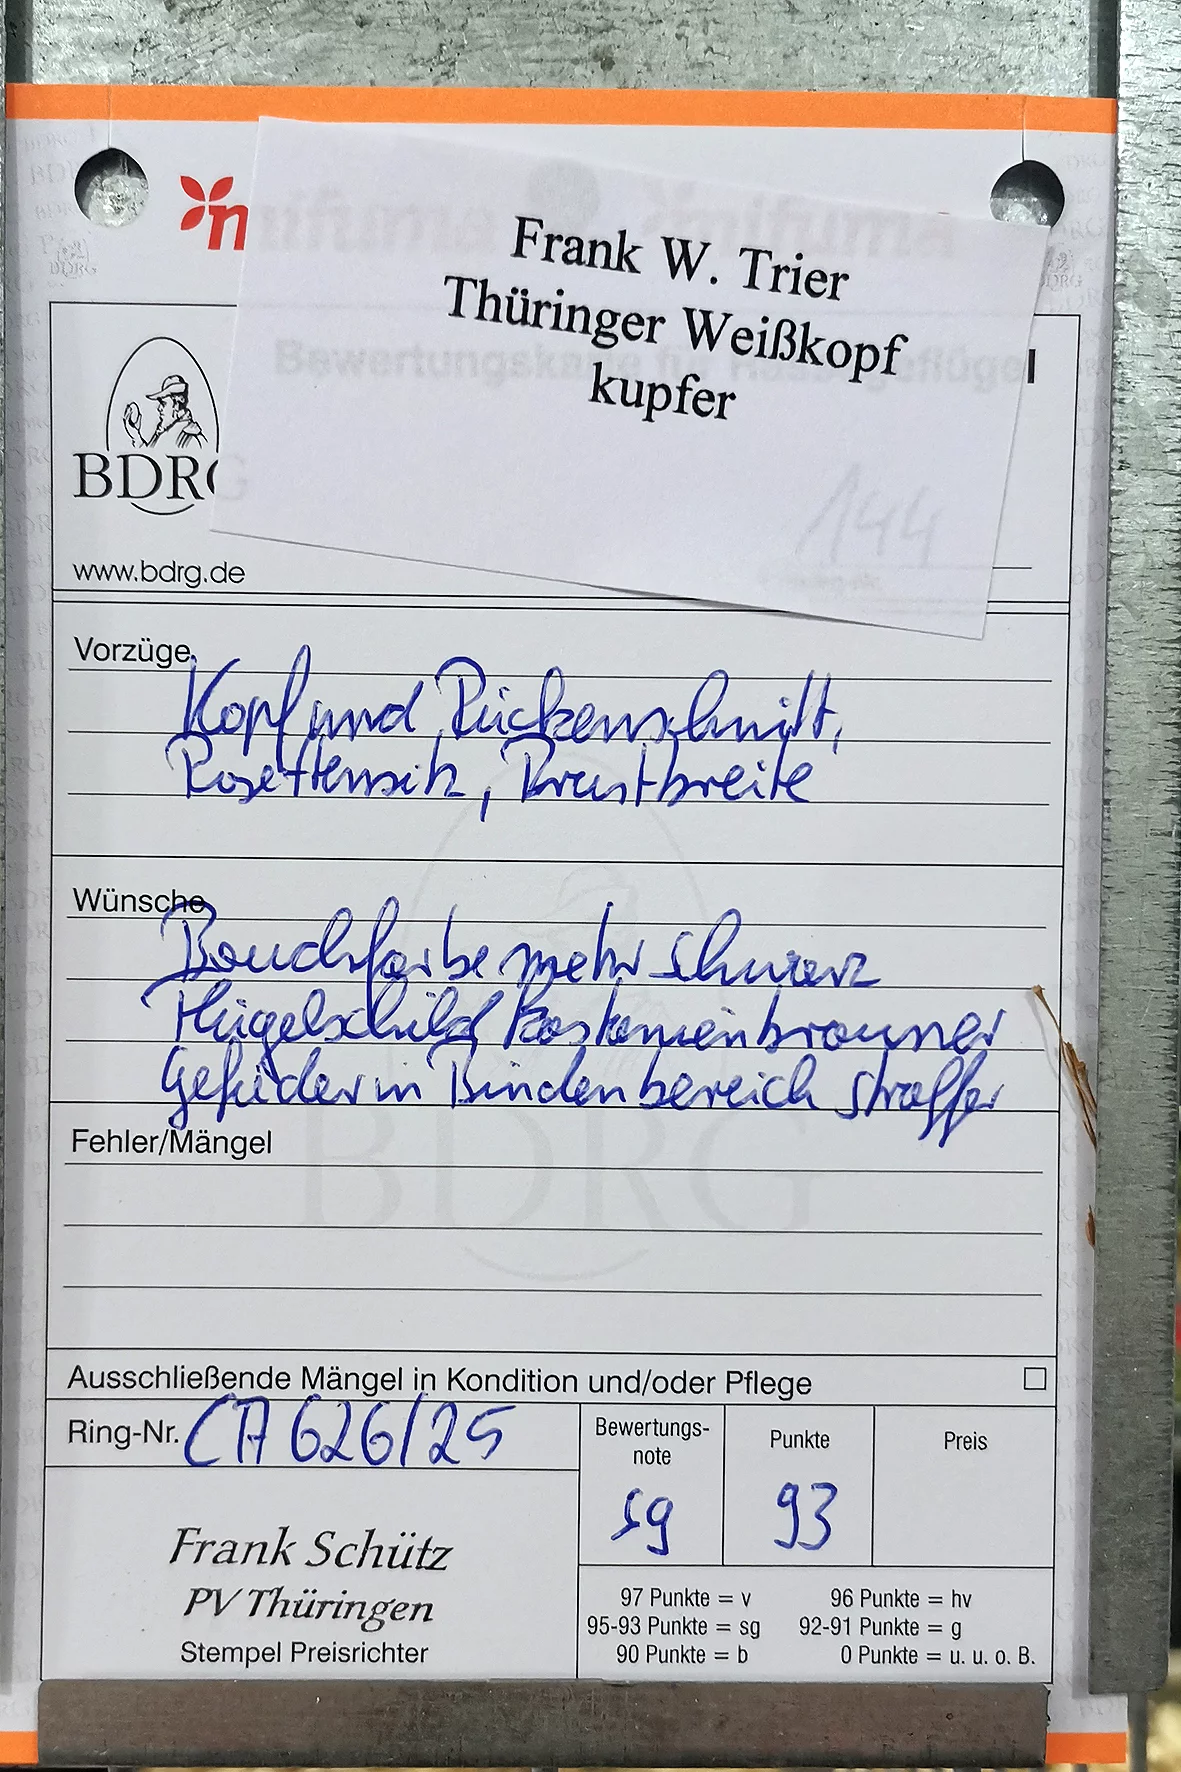 Frank W. Trier
Thüringer Weißkopf
kupfer
Bewertungskarte für Rassegeflügel
144
BDRG
www.bdrg.de
Vorzüge
Kopf und Rückenschnitt,
Rosettensitz, Brustbreite
Wünsche
Bauchfarbe mehr schwarz
Flügelschild kastanienbrauner
Gefieder in Bindenbereich straffer
Fehler/Mängel
BDRG
Ausschließende Mängel in Kondition und/oder Pflege
Ring-Nr. CA 626/25
Bewertungs-
note
Punkte
Preis
sg
93
Frank Schütz
PV Thüringen
Stempel Preisrichter
97 Punkte = v
96 Punkte = hv
95-93 Punkte = sg
92-91 Punkte = g
90 Punkte = b
0 Punkte = u. u. o. B.